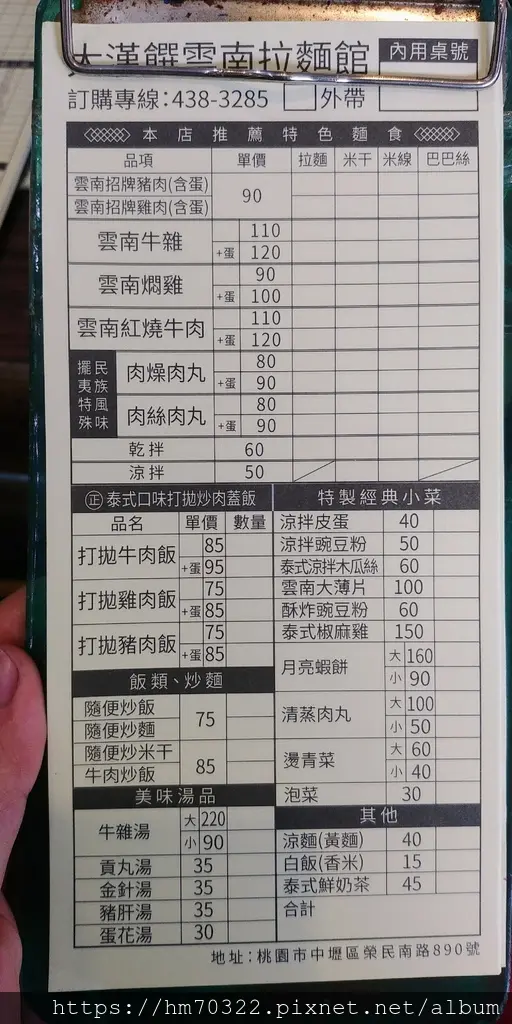 大漢饌雲南拉麵館 內用桌號
訂購專線:438-3285 外帶
本店推薦特色麵食
品項 單價 拉麵 米干 米線 巴巴絲
雲南招牌豬肉(含蛋) 90
雲南招牌雞肉(含蛋)
雲南牛雜 110
+蛋 120
雲南燜雞 90
+蛋 100
雲南紅燒牛肉 110
+蛋 120
擺夷特殊 民族風味
肉燥肉丸 80
+蛋 90
肉絲肉丸 80
+蛋 90
乾拌 60
涼拌 50
正 泰式口味打拋炒肉蓋飯
品名 單價 數量
打拋牛肉飯 85
+蛋 95
打拋雞肉飯 75
+蛋 85
打拋豬肉飯 75
+蛋 85
飯類、炒麵
隨便炒飯 75
隨便炒麵
隨便炒米干 85
牛肉炒飯
美味湯品
牛雜湯 大 220
小 90
貢丸湯 35
金針湯 35
豬肝湯 35
蛋花湯 30
特製經典小菜
涼拌皮蛋 40
涼拌豌豆粉 50
泰式涼拌木瓜絲 60
雲南大薄片 100
酥炸豌豆粉 60
泰式椒麻雞 150
月亮蝦餅 大 160
小 90
清蒸肉丸 大 100
小 50
燙青菜 大 60
小 40
泡菜 30
其他
涼麵(黃麵) 40
白飯(香米) 15
泰式鮮奶茶 45
合計
地址:桃園市中壢區榮民南路890號
https://hm70322.pixnet.net/album